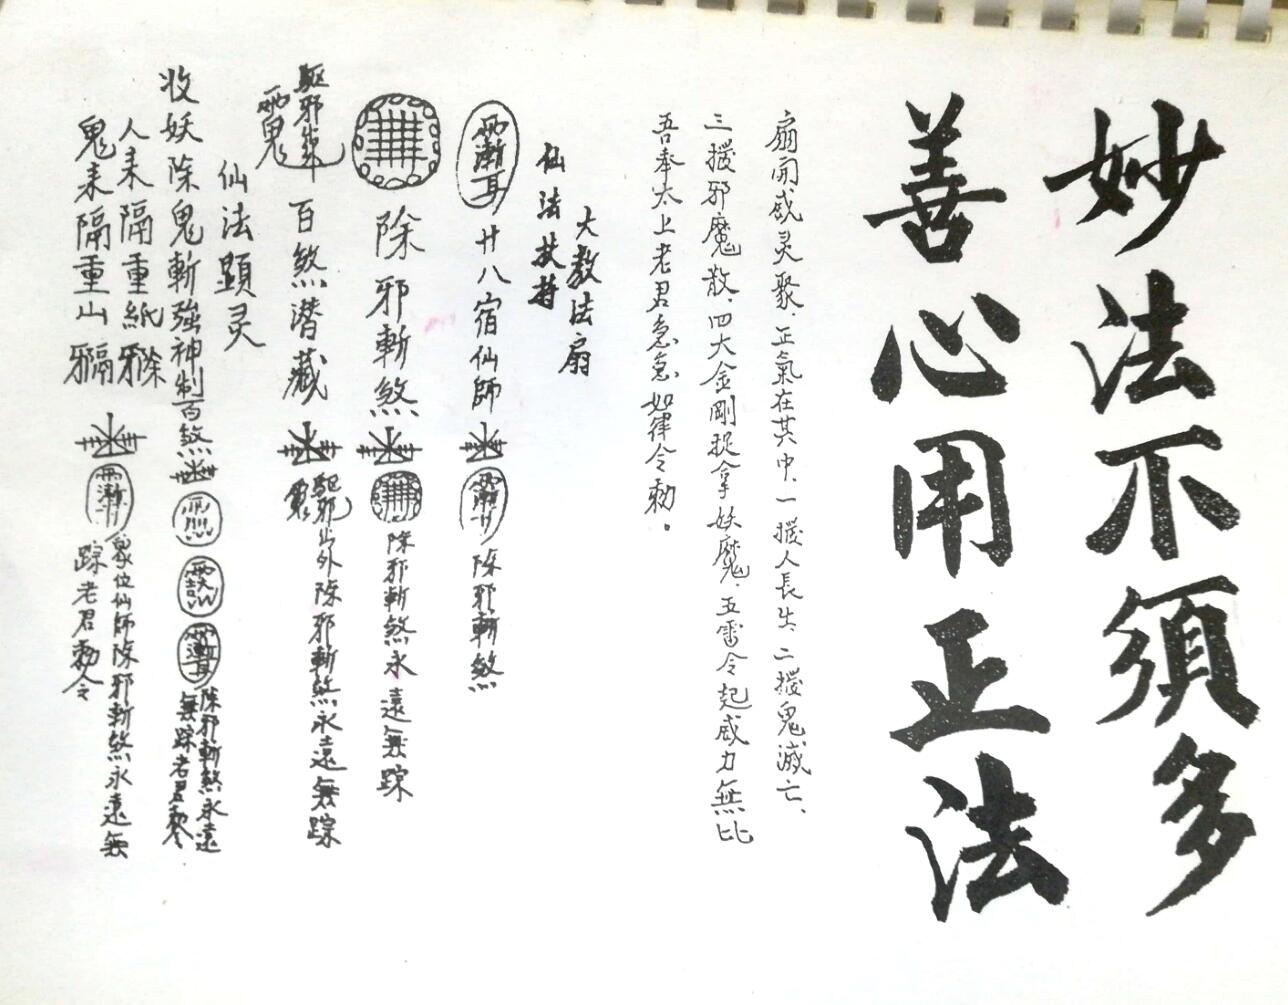 妙法不須多
善心用正法
扇開威灵聚、正氣在其中、一撥人長生、二撥鬼滅亡、
三撥邪魔散、四大金剛捉拿妖魔、五雷令起威力無比
吾奉太上老君急急如律令勅。
大教法扇
仙法扶持
廿八宿仙師
除邪斬煞
除邪斬煞
除邪斬煞永遠無踪
驅邪出外
百煞潜藏
驅邪出外除邪斬煞永遠無踪
仙法顕灵
收妖除鬼斬強神制百煞
除邪斬煞永遠
無踪老君勅令
人来隔重紙
鬼来隔重山
眾位仙師除邪斬煞永遠無
踪老君勅令